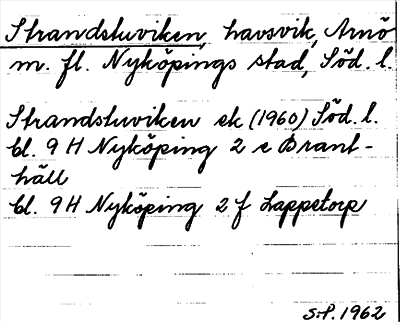 Strandstuviken, havsvik, Arnö
m. fl. Nyköpings stad, Söd. l.
Strandstuviken ek (1960) Söd. l.
Bl. 9 H Nyköping 2 e Brant-
häll
Bl. 9 H Nyköping 2 f Lappetorp
S.P. 1962